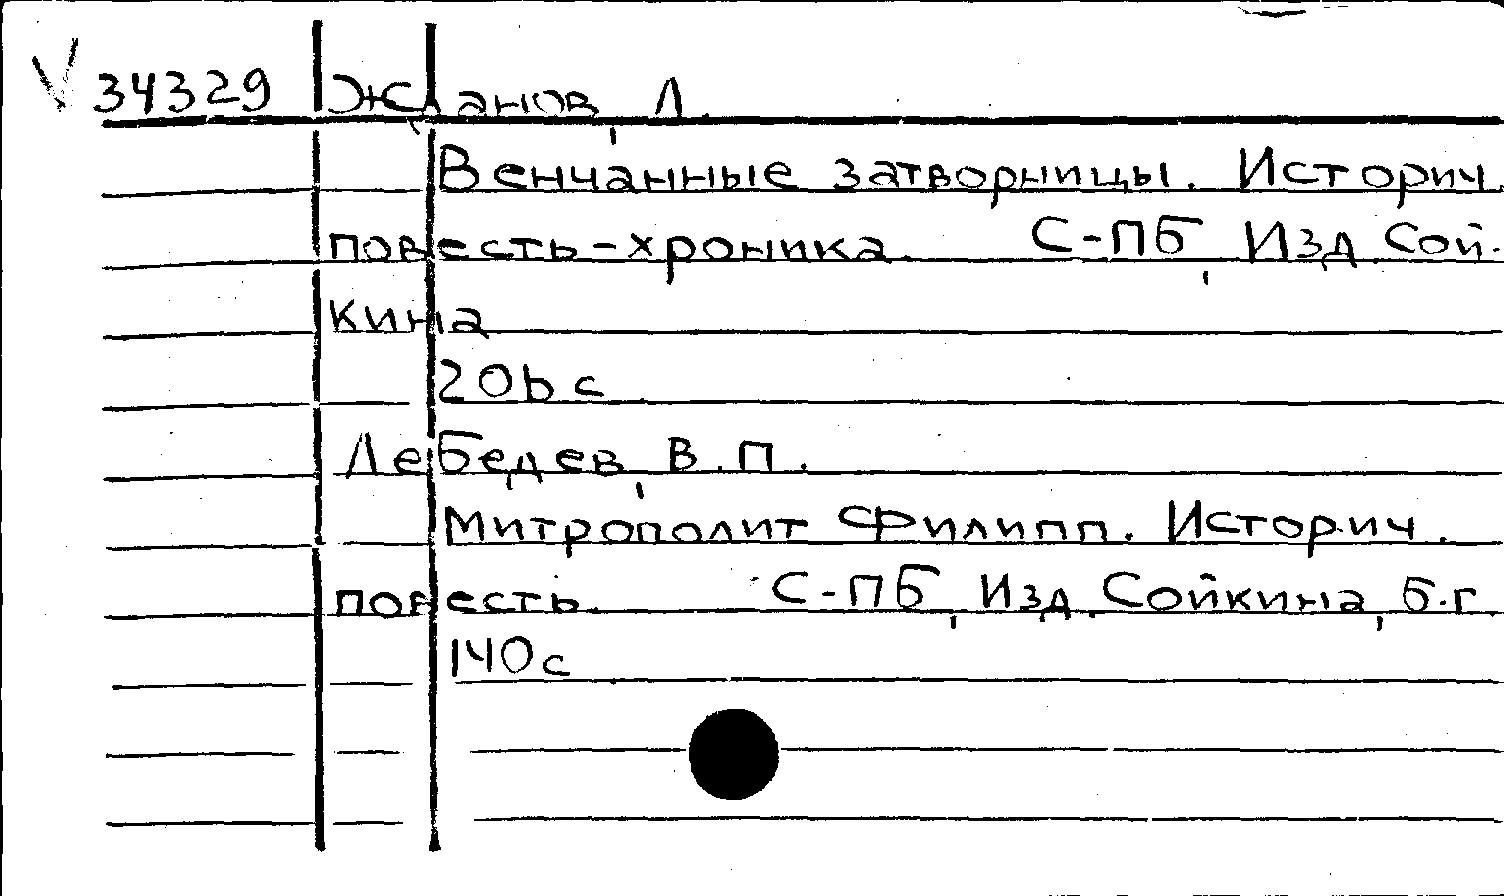 V 34329 Жданов, Л.
Венчанные затворницы. Историч.
повесть-хроника. С-ПБ, Изд. Сой-
кина
206 с
Лебедев, В.П.
Митрополит Филипп. Историч.
повесть. С-ПБ, Изд. Сойкина, б.г.
140 с